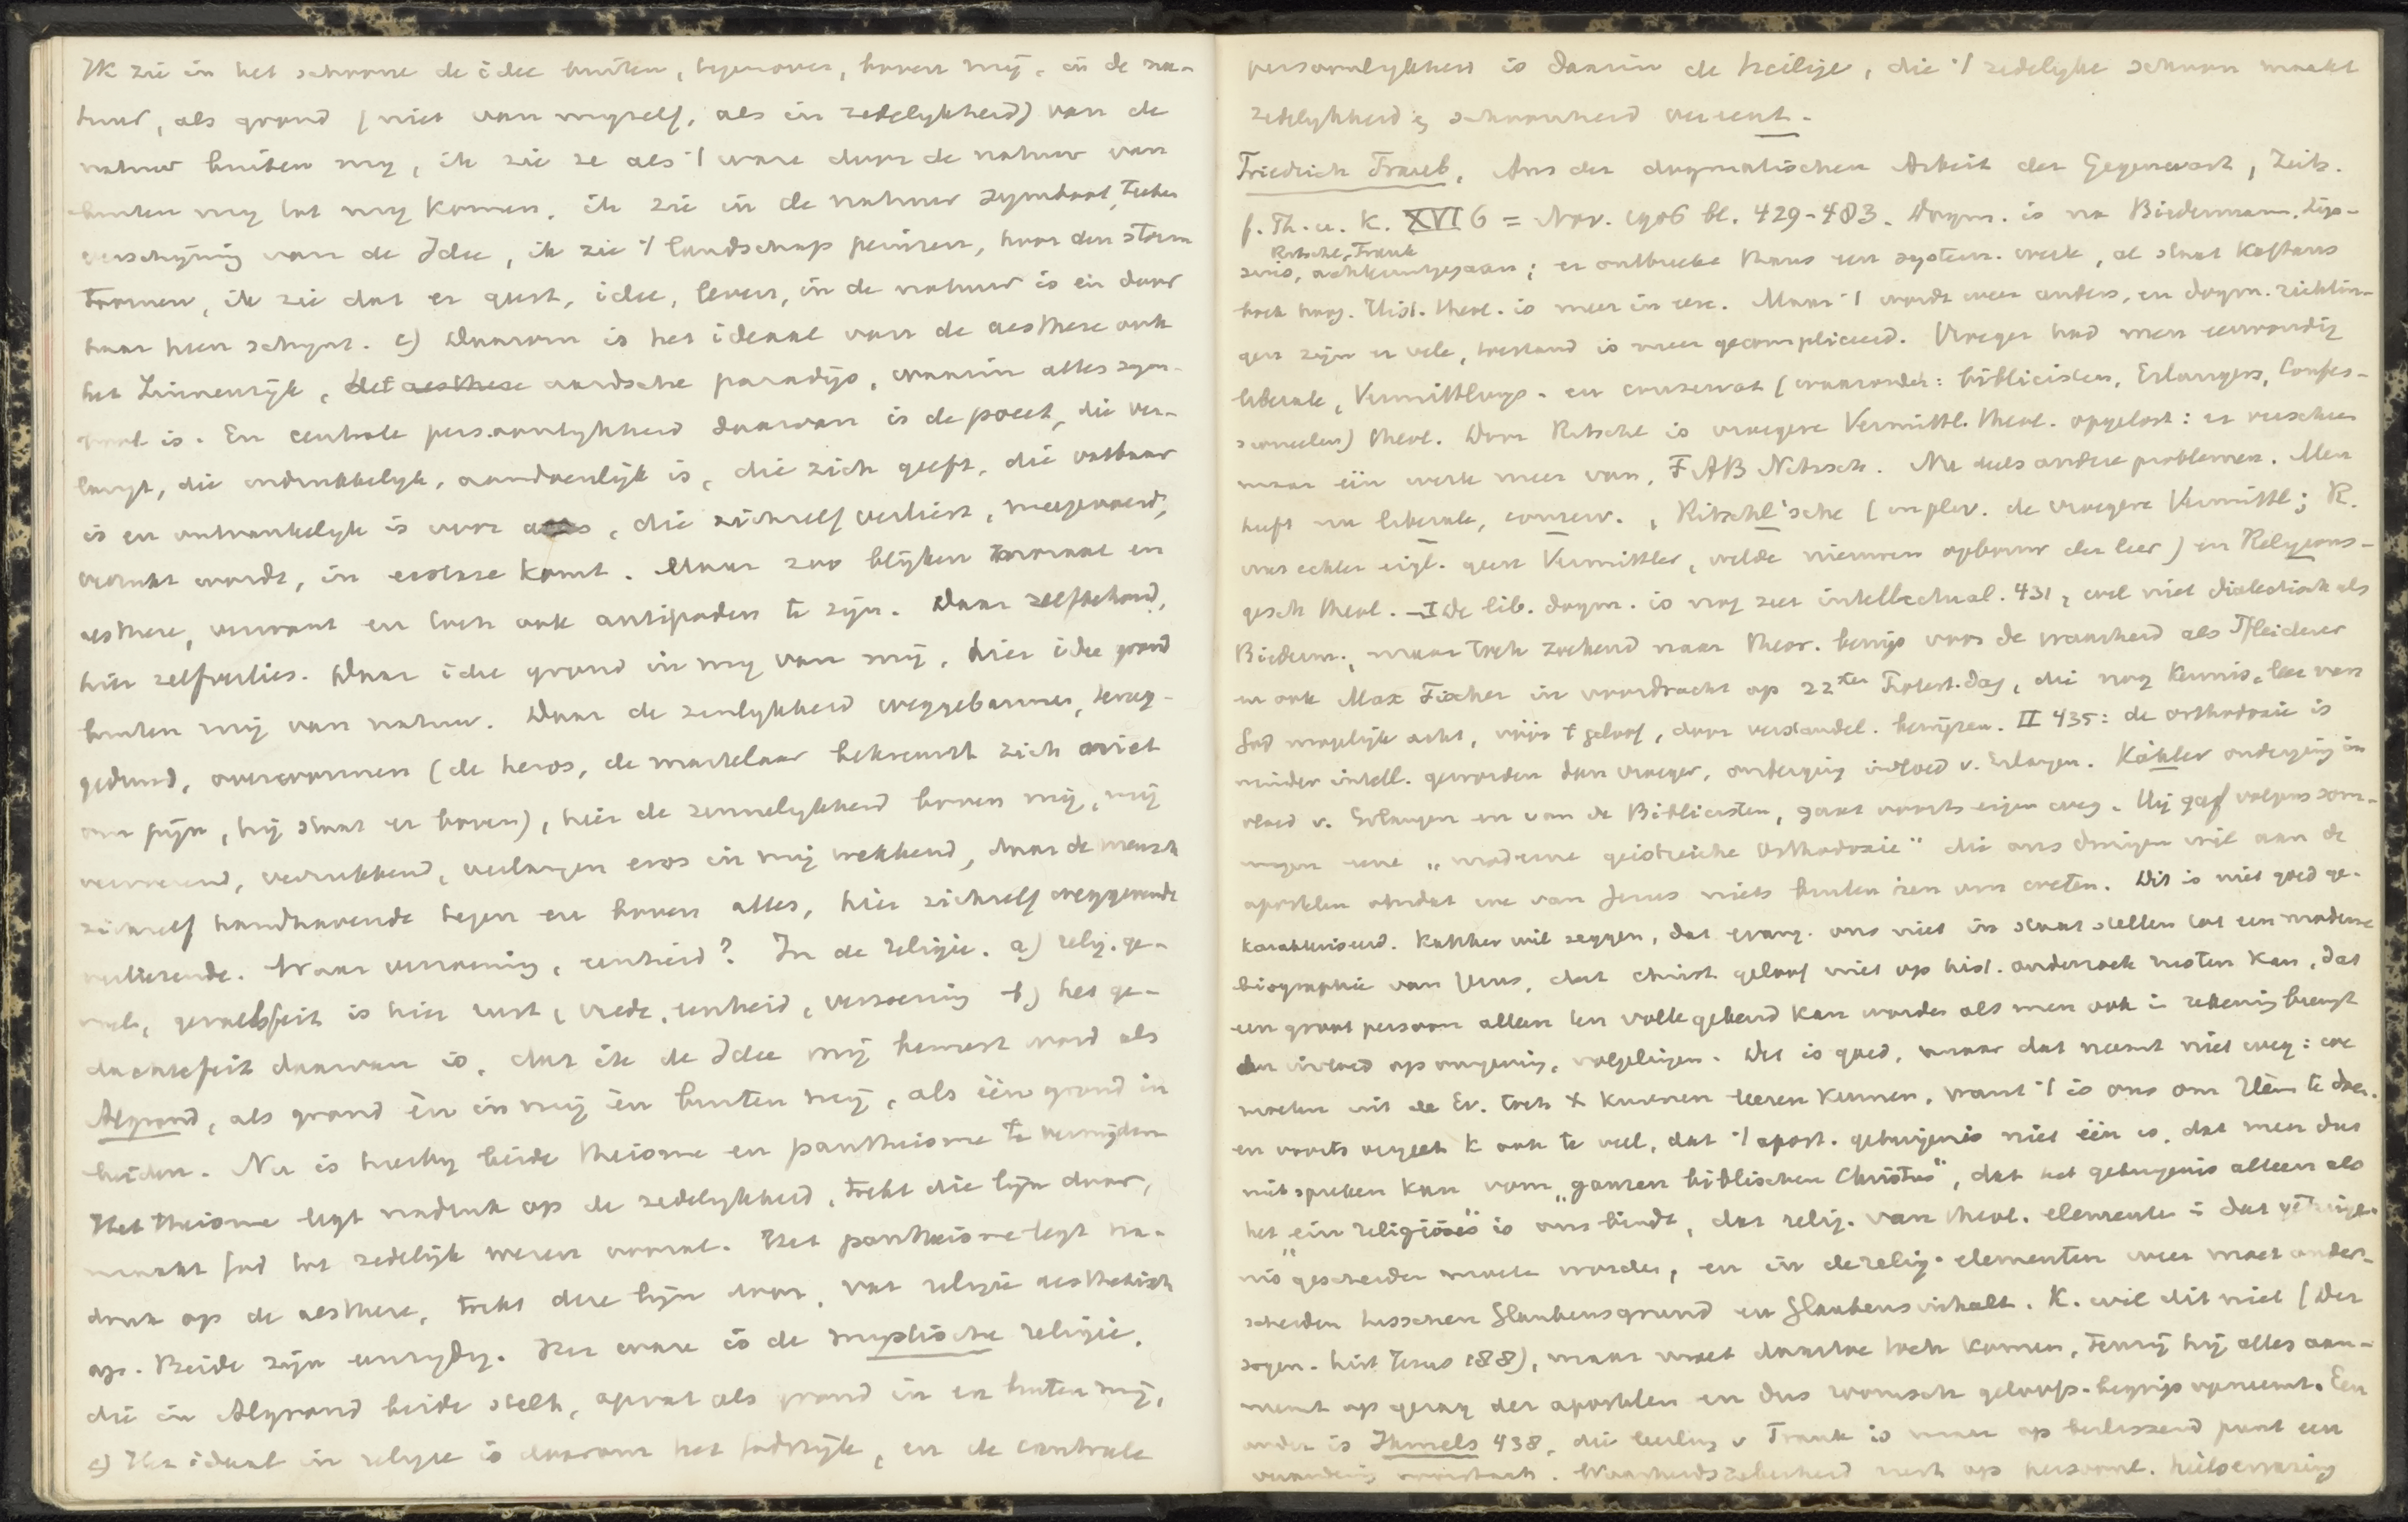 Ik zie in het schoone de idee buiten, tegenover, boven mij, in de na-
tuur, als grond (niet van myzelf, als in zedelykheid) van de
natuur buiten my, ik zie ze als 't ware door de natuur van
buiten my tot my komen, ik zie in de natuur symbool, teeken
verschyning van de Idee, ik zie 't landschap peinzen, hoor den storm
toornen, ik zie dat er geest, idee, leven, in de natuur is en door
haar heen schynt. c) Daarom is het ideaal van de aesthese ook
het Zinnenrijk, het aesthese aardsche paradijs, waarin alles sym-
bool is. En centrale persoonlykheid daarvan is de poeet, die ver-
langt, die indrukkelyk, aandoenlijk is, die zich geeft, die vatbaar
is en ontvankelyk is voor alles, die zichzelf verliest, meegevoerd,
verrukt wordt, in extase komt. Maar zoo blijken moraal en
aesthese, verstand en hart ook antipoden te zijn. Daar zelfbehoud,
hier zelfverlies. Daar idee grond in my van mij, hier idee grond
buiten mij van natuur. Daar de zinlykheid weggebannen, terug-
gedrund, overwonnen (de heros, de martelaar bekreunt zich niet
om pijn, hij staat er boven), hier de zinnelykheid boven mij, mij
vervoerend, verrukkend, verlangen eros in mij wekkend, daar de mensch
zichzelf handhavende tegen en boven alles, hier zichzelf weggevende
verliezende. Waar verzoening, eenheid? In de religie. a) relig. ge-
voels, gevoelsfeit is hier rust, vrede, eenheid, verzoening b) het ge-
dachtefeit daarvan is, dat ik de Idee mij bewust word als
Algrond, als grond èn in mij èn buiten mij, als één grond in
beiden. Nu is hierby beide theisme en pantheisme te vermijden
Het theisme legt nadruk op de zedelykheid, trekt die lijn door,
maakt God tot zedelijk wezen vooral. Het pantheisme legt na-
druk op de aesthese, trekt deze lijn door, vat religie aesthetisch
op. Beide zijn eenzydig. Het ware is de mystische religie,
die in Algrond beide stelt, opvat als grond in en buiten mij,
c) Het ideaal in religie is daarom het Godsrijk, en de centrale
persoonlykheid is daarin de heilige, die 't zedelyke schoon maakt
zedelykheid en schoonheid vereent.
Friedrich Traub, Aus der dogmatischen Arbeit der Gegenwart, Zeits.
f. Th. u. K. XVI 6 = Nov. 1906 bl. 429-483. Dogm. is na Biedermann, Lip-
Ritschl, Frank
sius, achteruitgegaan; er ontbreekt thans een system. werk, al staat Kaftans
boek hoog. Hist. theol. is meer in eere. Maar 't wordt weer anders, en dogm. richtin-
gen zijn er vele, toestand is meer gecompliceerd. Vroeger had men eenvoudig
liberale, Vermittlungs- en conservat (waaronder: biblicisten, Erlangers, Confes-
sioneelen) theol. Door Ritschl is vroegere Vermittl. theol. opgelost: er verscheen
maar één werk meer van, FAB Nitzsch. Nu dus andere problemen. Men
heeft nu liberale, conserv., Ritschl'sche (in plv. de vroegere Vermittl; R.
was echter eigl. geen Vermittler, wilde nieuwen opbouw der leer) en Religions-
gesch theol. — I de lib. dogm. is nog zeer intellectual. 431, wel niet dialectisch als
Biederm., maar toch zoekend naar theor. bewijs voor de waarheid als Pfleiderer
en ook Max Fischer in voordracht op 22ten Protest.dag, die nog kennis, leer van
God mogelijk acht, vóór 't geloof, door verstandel. bewijzen. II 435: de orthodoxie is
minder intell. geworden dan vroeger, onderging invloed v. Erlangen. Kähler onderging in-
vloed v. Erlangen en van de Biblicisten, gaat voorts eigen weg. Hij gaf volgens som-
migen eene „moderne geistreiche Orthodoxie" die ons dwingen wil aan de
apostelen omdat we van Jezus niets buiten hen om weten. Dit is niet goed ge-
karakteriseerd. Kähler wil zeggen, dat evang. ons niet in staat stellen tot een moderne
biographie van Jezus, dat christ. geloof niet op hist. onderzoek rusten kan, dat
een groot persoon alleen ten volle gekend kan worden als men ook in rekening brengt
den invloed op omgeving, volgelingen. Dit is goed, maar dat neemt niet weg: we
moeten uit de Ev. toch X kunnen leeren kennen, want 't is ons om Hem te doen.
en voorts vergeet K ook te veel, dat 't apost. getuigenis niet één is, dat men dus
niet spreken kan vom „ganzen biblischen Christus", dat het getuigenis alleen als
het „ein religiöses" is ons bindt, dat relig. van theol. elementen in dat getuige-
nis gescheiden moeten worden, en in de relig. elementen weer moet onder-
scheiden tusschen Glaubensgrund en Glaubensinhalt. K. wil dit niet (Der
sogen. hist Jesus 188), maar moet daartoe toch komen, tenzij hij alles aan-
neemt op gezag der apostelen en dus roomsch geloofs-begrip opneemt. Een
ander is Ihmels 438, die leerling v Frank is maar op beslissend punt een
verandering. Waarheidszekerheid rust op persoonl. heilservaring